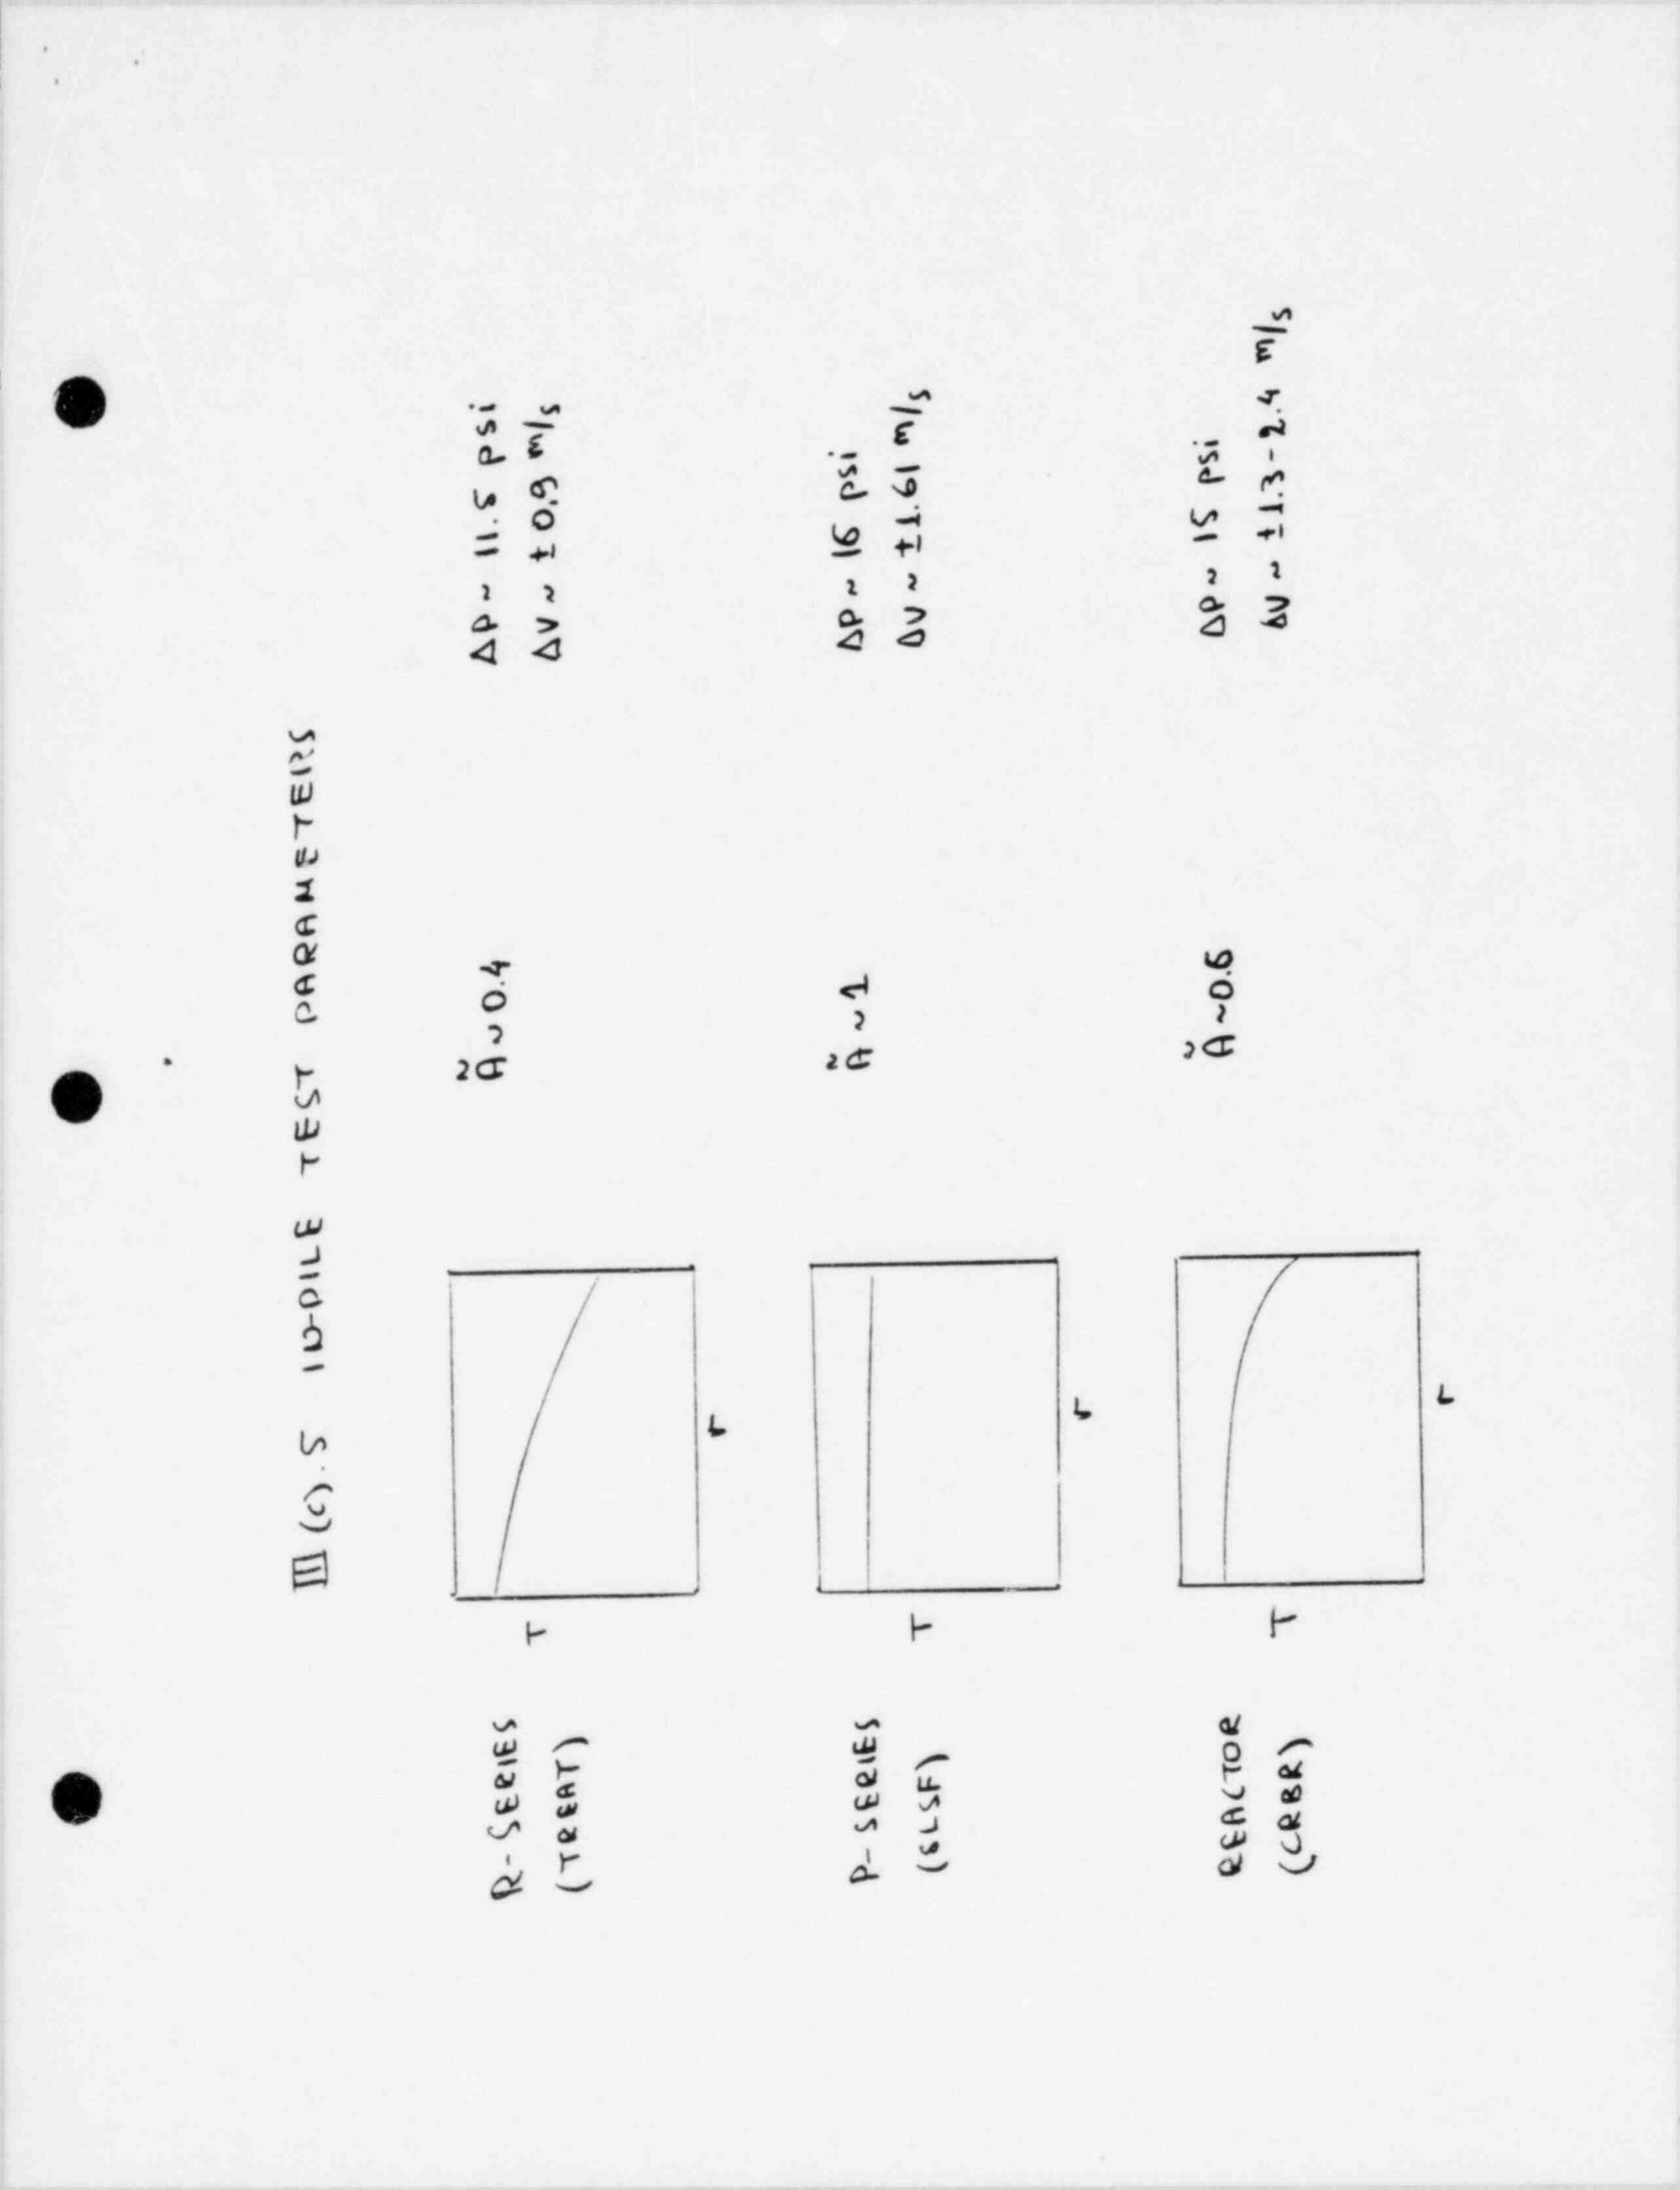 III (c).5 IN-PILE TEST PARAMETERS
R-SERIES
(TREAT)
T
r
Ã ~ 0.4
ΔP ~ 11.5 psi
ΔV ~ ± 0.9 m/s
P-SERIES
(SLSF)
T
r
Ã ~ 1
ΔP ~ 16 psi
ΔV ~ ±1.61 m/s
REACTOR
(CRBR)
T
r
Ã ~0.6
ΔP ~ 15 psi
ΔV ~ ±1.3-2.4 m/s